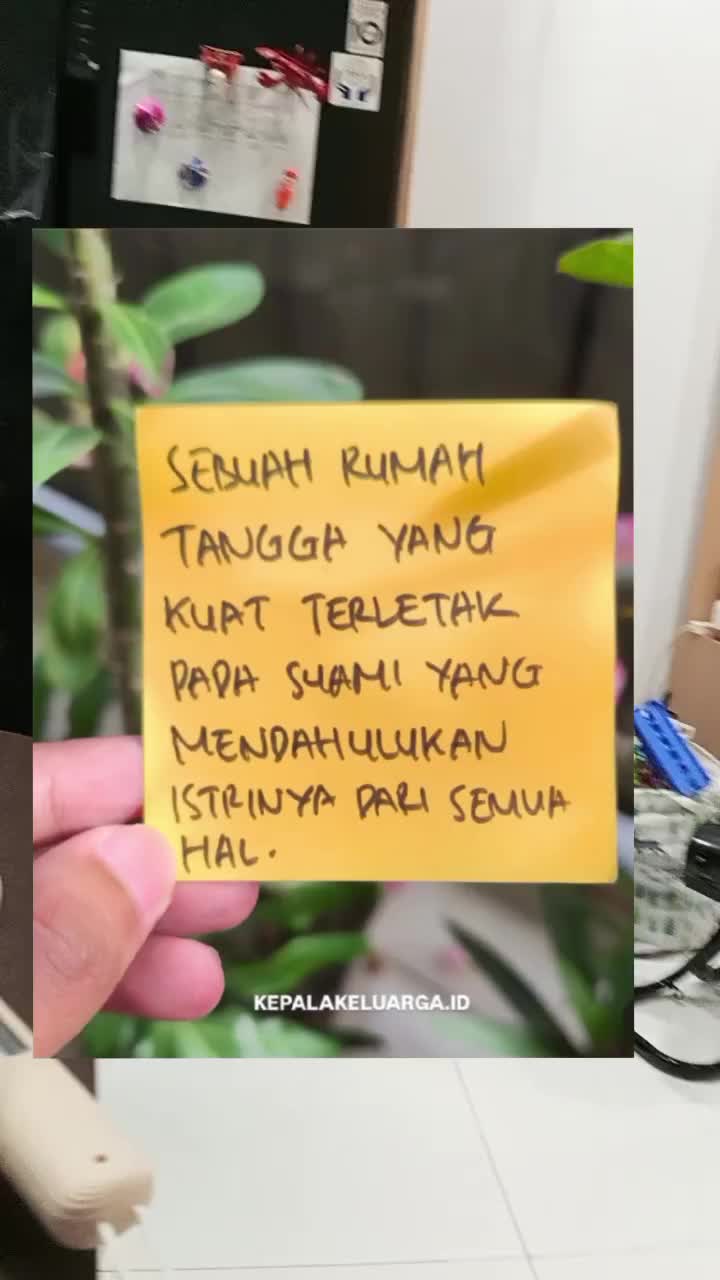 SEBUAH RUMAH
TANGGA YANG
KUAT TERLETAK
PADA SUAMI YANG
MENDAHULUKAN
ISTRINYA DARI SEMUA
HAL.
KEPALAKELUARGA.ID